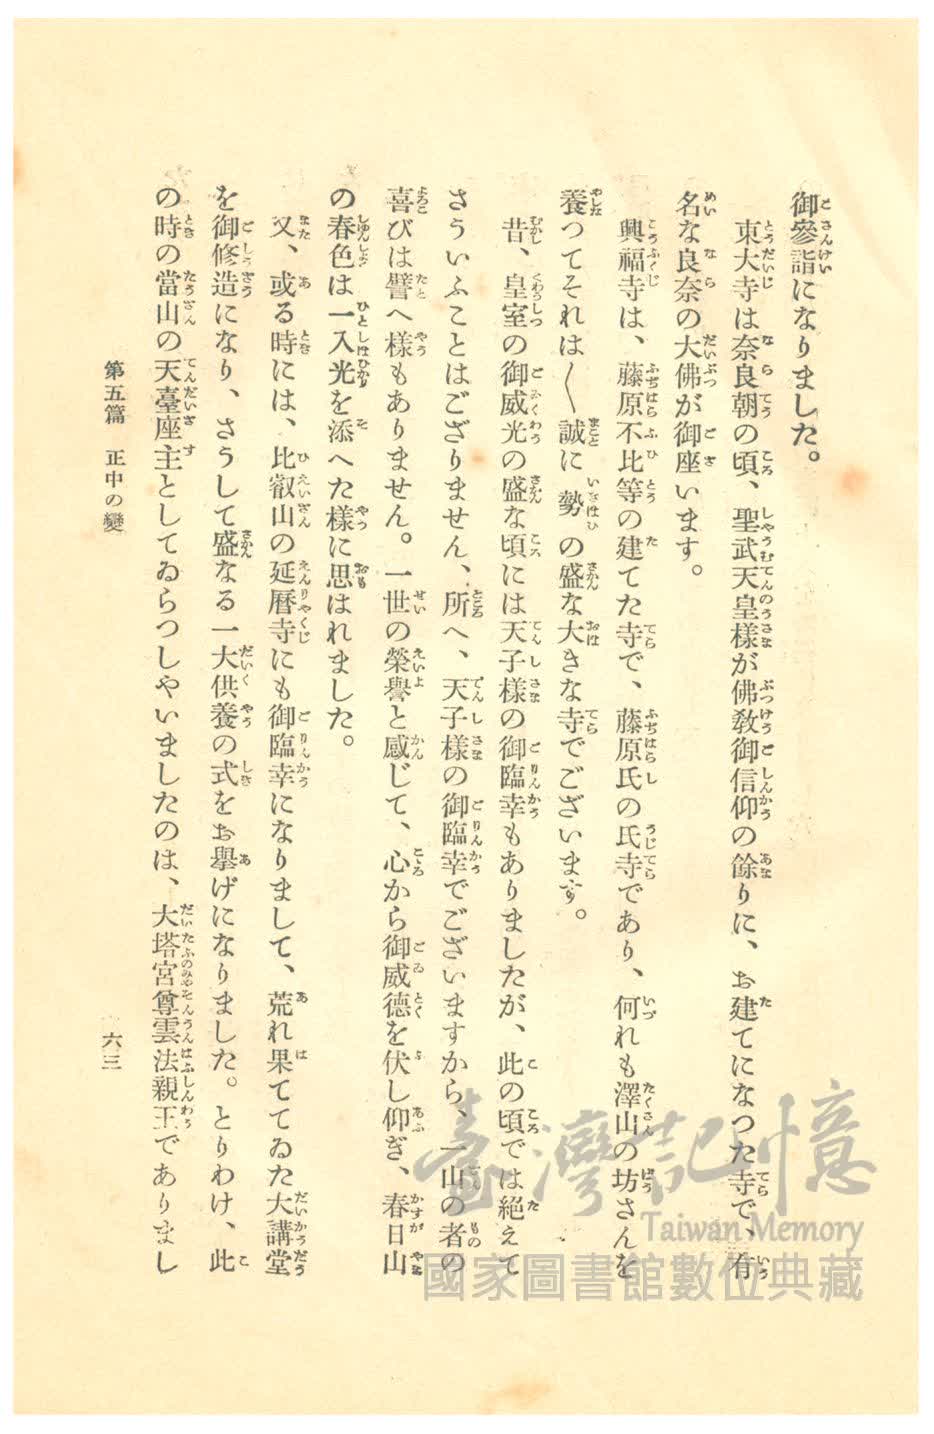 御參詣になりました。
東大寺は奈良朝の頃、聖武天皇樣が佛敎御信仰の餘りに、お建てになつた寺で、有
名な良奈の大佛が御座います。
興福寺は、藤原不比等の建てた寺で、藤原氏の氏寺であり、何れも澤山の坊さんを
養つてそれは〱誠に勢の盛な大きな寺でございます。
昔、皇室の御威光の盛な頃には天子樣の御臨幸もありましたが、此の頃では絕えて
さういふことはござりません、所へ、天子樣の御臨幸でございますから、一山の者の
喜びは譬へ樣もありません。一世の榮譽と感じて、心から御威德を伏し仰ぎ、春日山
の春色は一入光を添へた樣に思はれました。
又、或る時には、比叡山の延曆寺にも御臨幸になりまして、荒れ果ててゐた大講堂
を御修造になり、さうして盛なる一大供養の式をお擧げになりました。とりわけ、此
の時の當山の天臺座主としてゐらつしやいましたのは、大塔宮尊雲法親王でありまし
第五篇 正中の變
六三
臺灣記憶
Taiwan Memory
國家圖書館數位典藏